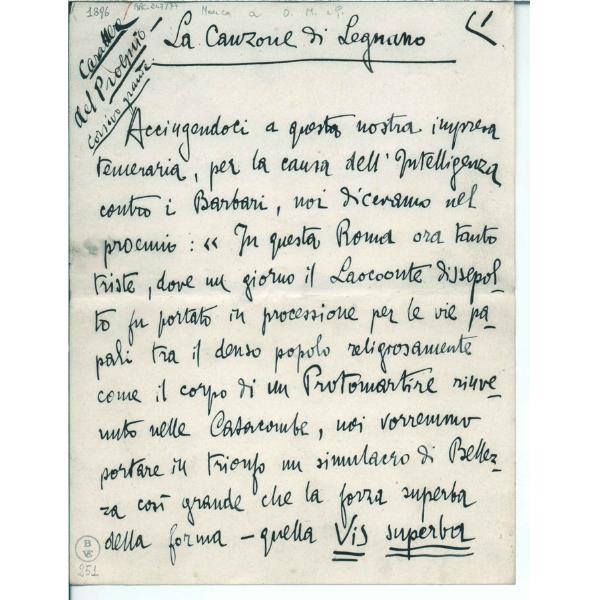 1896
Manca a
Carattere
del Proemio
corsivo grande
La Canzone di Legnano
Accingendoci a questa nostra impresa
temeraria, per la causa dell'Intelligenza
contro i Barbari, noi dicevamo nel
proemio: « In questa Roma ora tanto
triste, dove un giorno il Laocoonte dissepol-
to fu portato in processione per le vie pa-
pali tra il denso popolo religiosamente
come il corpo di un Protomartire rinve-
nuto nelle Catacombe, noi vorremmo
portare in trionfo un simulacro di Bellez-
za così grande che la forza superba
della forma – quella Vis superba
B
251